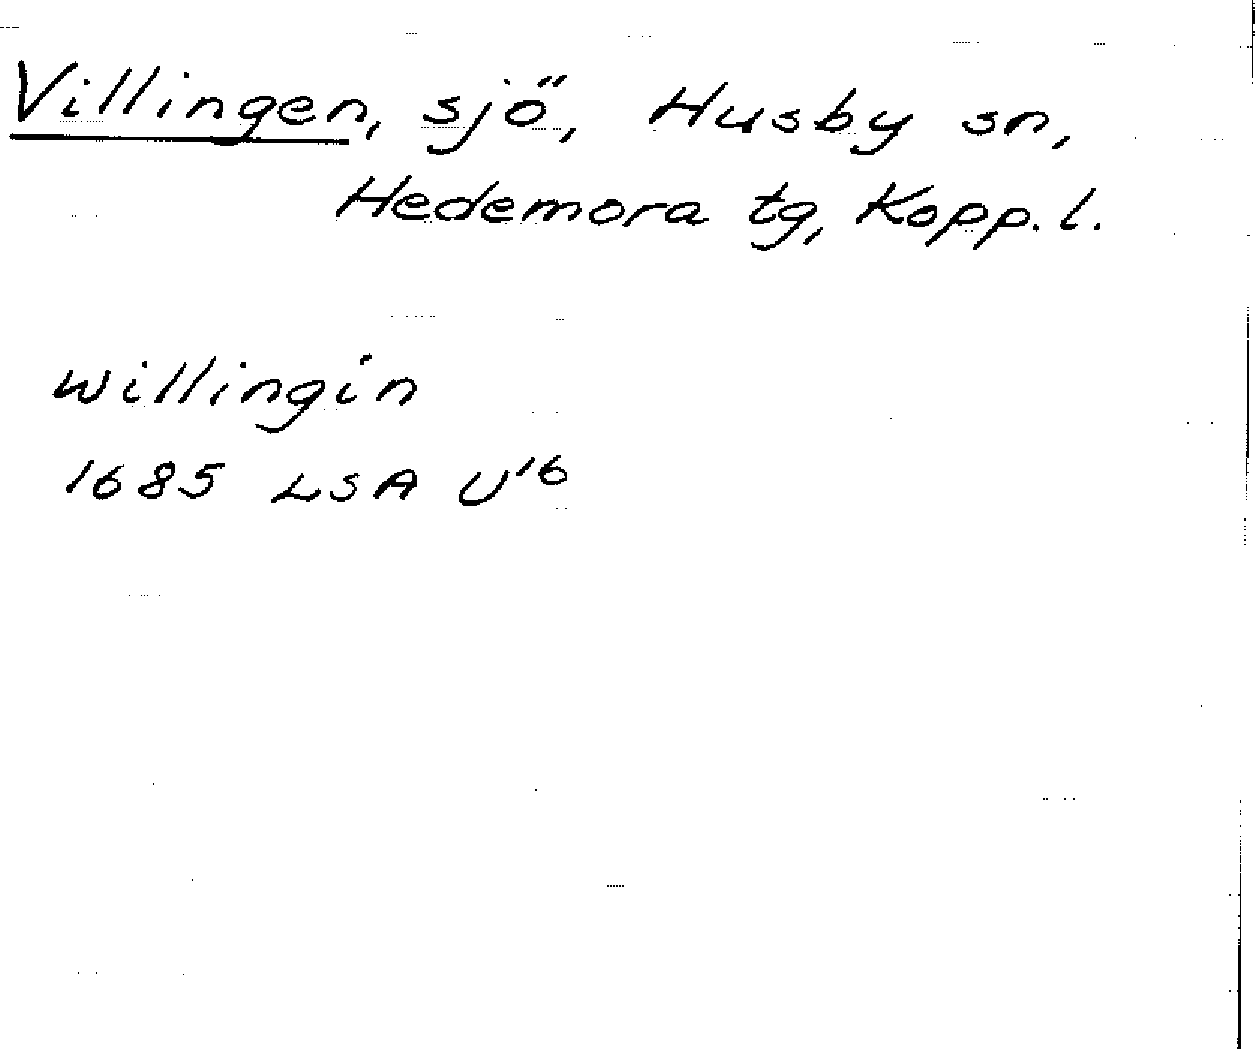 Villingen, sjö, Husby sn,
Hedemora tg, Kopp. l.
willingin
1685 LSA U¹⁶